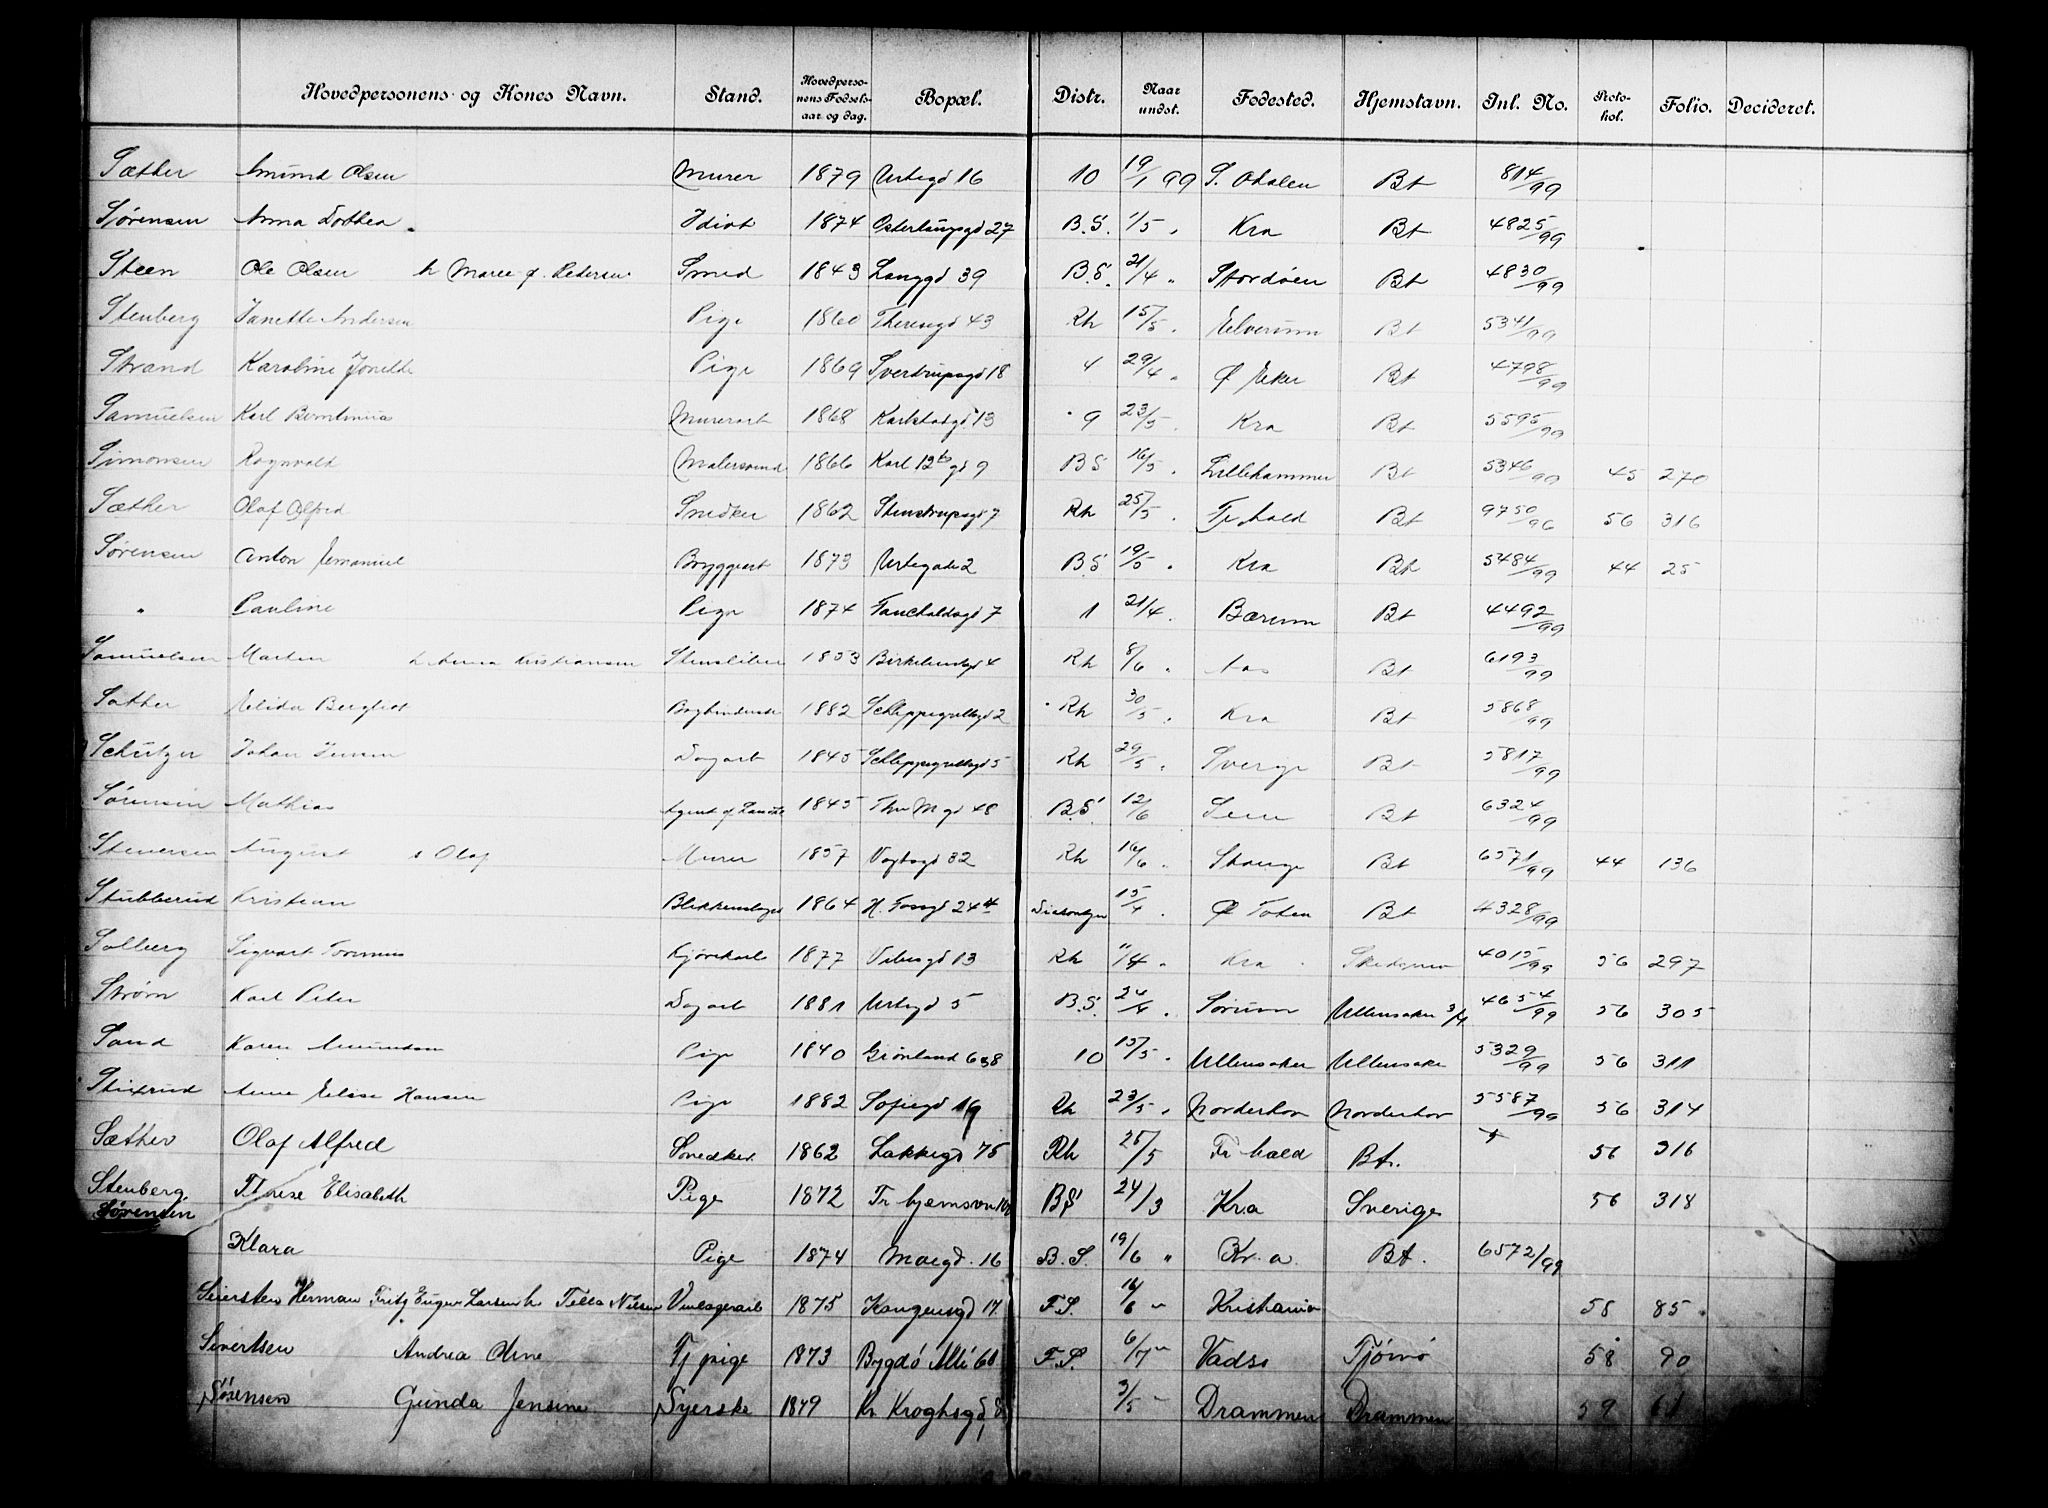 Hovedpersonens og Kones Navn. Stand. Hovedpersonens Fødselsaar og dag. Bopæl. Distr. Naar undst. Fødested. Hjemstavn. Inl. No. Protokol. Folio. Decideret.
Sæther Amund Olsen Murer 1879 Urtegd 16 10 19/1 99 S. Odalen Bt 814/99
Sørensen Anna Dorthea Idiot 1874 27 B.S. 1/5 " Kra Bt 4825/99
Steen Ole Olsen h Maree f. Pedersen Smed 1843 Langgd 39 B.S. 21/4 " Stordøen Bt 4830/99
Stenberg Janette Andersen Pige 1860 Theresegd 43 Rh 15/5 " Elverum Bt 5341/99
Strand Karoline Jonette Pige 1869 Sverdrupsgd 18 4 29/4 " Ø Eker Bt 4798/99
Samuelsen Karl Murerarb 1868 Karlstadgd 13 9 23/5 " Kra Bt 5595/99
Simonsen Ragnvald Malersvend 1866 Karl 12ts gd 9 B S 16/5 " Lillehammer Bt 5346/99 45 270
Sæther Olaf Alfred Snedker 1862 Stenstrupsgd 7 Rh 25/5 " Fr hald Bt 9750/96 56 316
Sørensen Anton Emanuel Bryggearb 1873 Urtegade 2 B.S 19/5 " Kra Bt 5484/99 44 25
" Pauline Pige 1874 Fauchaldsgd 7 1 21/4 " Bærum Bt 4492/99
Samuelsen Martin h Anna Kristiansen 1853 Birkelundsgd 4 Rh 8/6 " Aas Bt 6193/99
Sæther Elida Bergliot 1882 Schleppegrellsgd 2 Rh 30/5 " Kra Bt 5868/99
Schützer Johan Jensen Dagarb 1845 Schleppegrellsgd 5 Rh 29/5 " Sverige Bt 5817/99
Sørensen Mathias 1845 Thv M gd 48 B.S. 12/6 Sem Bt 6324/99
Stenersen August s Olaf Murer 1857 Vogtsgd 32 Rh 16/6 " Stange Bt 6571/99 44 136
Stubberud Kristian Blikkenslager 1864 H. Fossgd 24 15/4 " Ø Toten Bt 4328/99
Solberg Sigvart Kjørekarl 1877 Vibesgd 13 Rh 11/4 " Kra Skedsmo 4015/99 56 297
Strøm Karl Peter Dagarb 1881 Urtegd 5 B.S. 24/4 " Sørum Ullensaker 4654/99 56 305
Sand Karen Amundsen Pige 1840 Grønland 6 10 15/5 " Ullensaker Ullensaker 5329/99 56 311
Stixrud Anna Elise Hansen Pige 1882 Sofiegd 19 Rh 23/5 " Norderhov Norderhov 5587/99 56 314
Sæther Olaf Alfred Snedker 1862 Lakkegd 75 Rh 25/5 Fr hald Bt. 56 316
Stenberg Therese Elisabeth Pige 1872 Tr hjemsvn BS 24/3 Kra Sverige 56 318
Sørensen
Klara Pige 1874 Maregd. 16 B. S. 19/6 " Kr.a. Bt. 6572/99
Seiersten Herman Fritz Eugen Larsen h Tella Nilsen Vinlagerarb 1875 Kongensgd 17. F.S. 16/6 " Kristiania 58 85
Sivertsen Andrea Oline Tj pige 1873 Bygdø Alle 60 F.S. 6/7 " Vadsø Tjømø 58 90
Sørensen Gunda Jensine Syerske 1849 Kr Kroghsgd 3/5 " Drammen Drammen 59 61